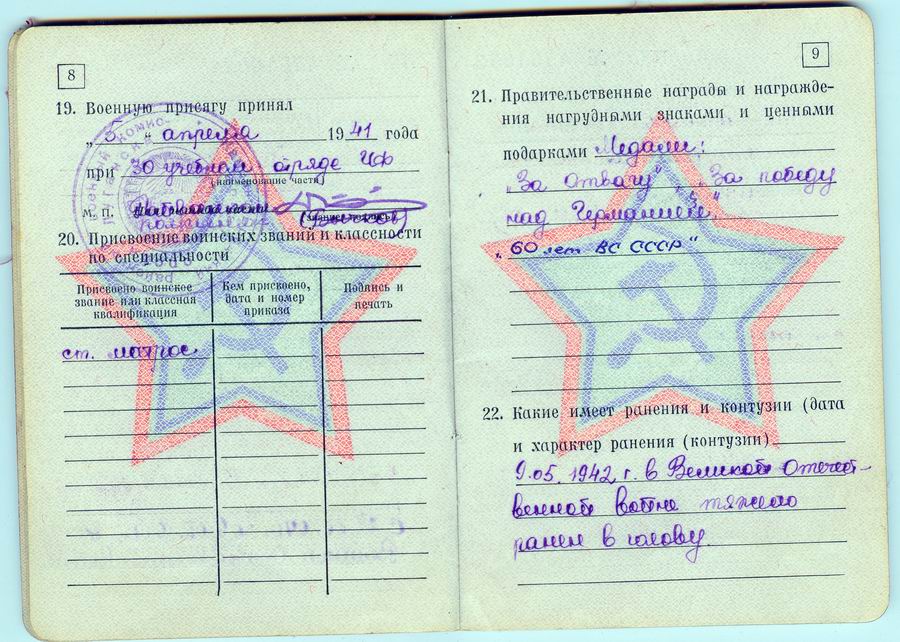 8
19. Военную присягу принял
„5“ апреля 1941 года
при 30 учебном отряде
(наименование части)
м. п.
20. Присвоение воинских званий и классности
по специальности
Присвоено воинское звание или классная квалификация
Кем присвоено, дата и номер приказа
Подпись и печать
ст. матрос
9
21. Правительственные награды и награжде-
ния нагрудными знаками и ценными
подарками Медали:
„За отвагу“ „За победу
над Германией“,
„60 лет ВС СССР“
22. Какие имеет ранения и контузии (дата
и характер ранения (контузии)
9.05.1942 г. в Великой Отечест-
венной войне тяжело
ранен в голову